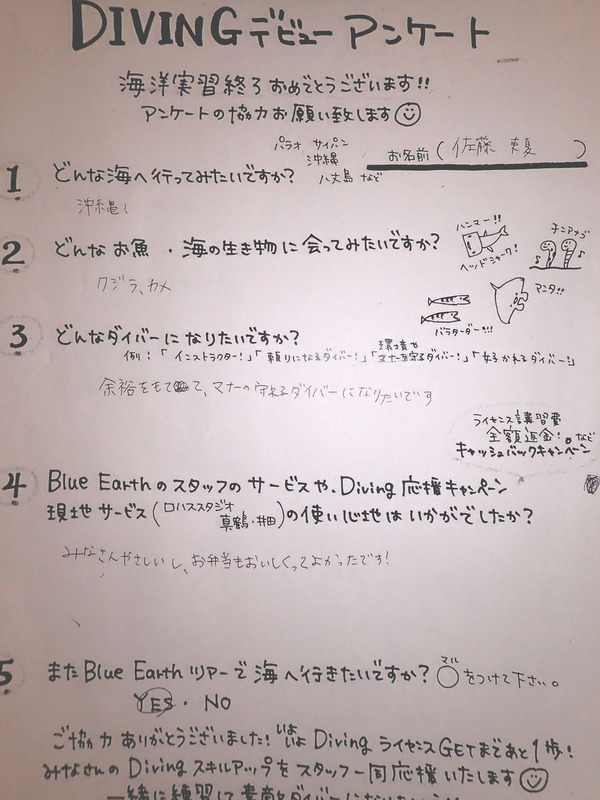 DIVING デビュー アンケート
海洋実習終了おめでとうございます!!
アンケートの協力お願い致します
パラオ サイパン
沖縄
八丈島 など
お名前( 佐藤 )
1 どんな海へ行ってみたいですか?
沖縄!
2 どんなお魚・海の生き物に会ってみたいですか?
クジラ、カメ
ハンマー!!
ヘッドシャーク!
チンアナゴ
マンタ!!
バラクーダー!!!
3 どんなダイバーになりたいですか?
例:「インストラクター!」「頼りになるダイバー!」「環境や
を守るダイバー!」「好かれるダイバー!」
余裕をもて て、マナーの守れるダイバーになりたいです
ライセンス講習費
全額返金!。など
キャッシュバックキャンペーン
4 Blue Earthのスタッフのサービスや、Diving応援キャンペーン
現地サービス(ロハススタジオ
真鶴・井田)の使い心地はいかがでしたか?
みなさんやさしいし、お弁当もおいしくってよかったです!
5 またBlue Earthツアーで海へ行きたいですか? マル ○をつけて下さい。
YES・NO
ご協力ありがとうございました!いよいよDivingライセンスGETまであと1歩!
みなさんのDivingスキルアップをスタッフ一同応援いたします
一緒に練習して素敵なダイバーになりましょう